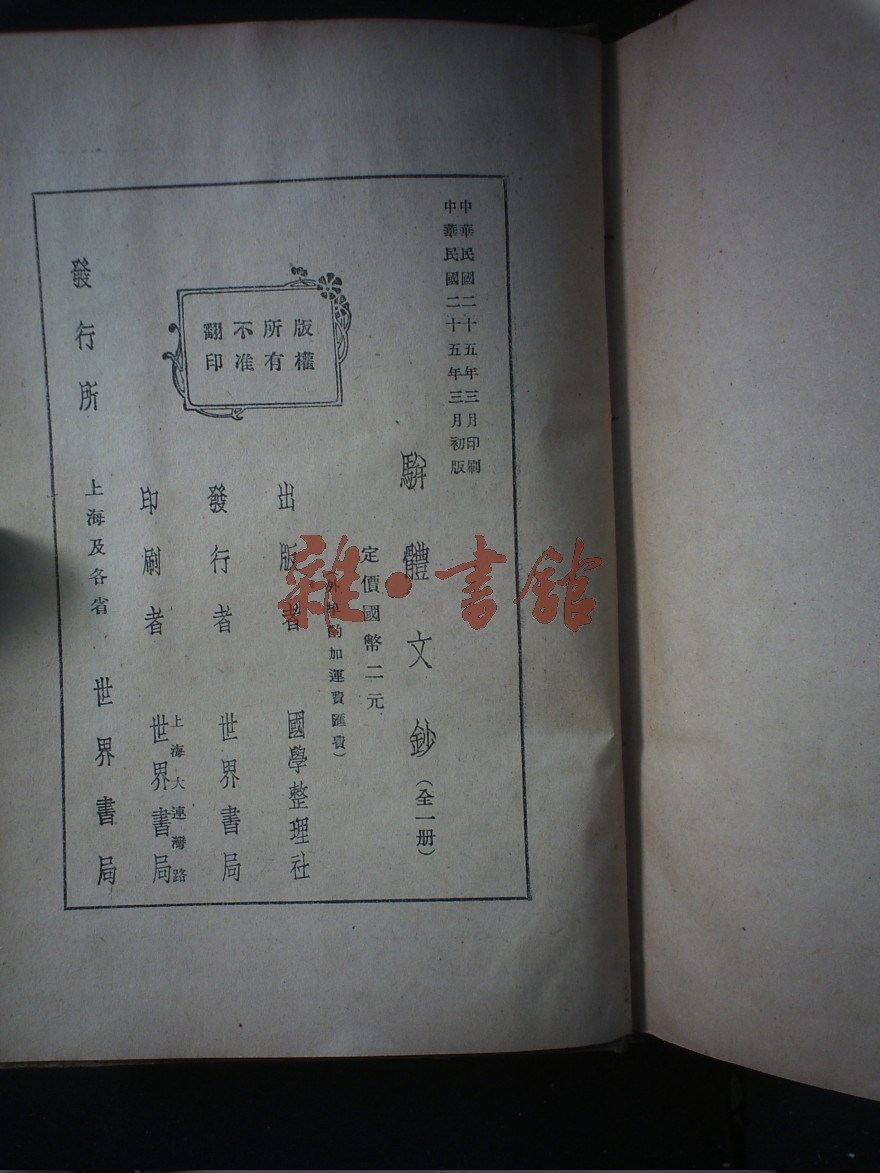 中華民國二十五年三月印刷
中華民國二十五年三月初版
駢體文鈔(全一册)
定價國幣二元
酌加運費匯費)
出版者 國學整理社
發行者 世界書局
上海大連灣路
印刷者 世界書局
發行所 上海及各省 世界書局
版權
所有
不准
翻印
雜·書館